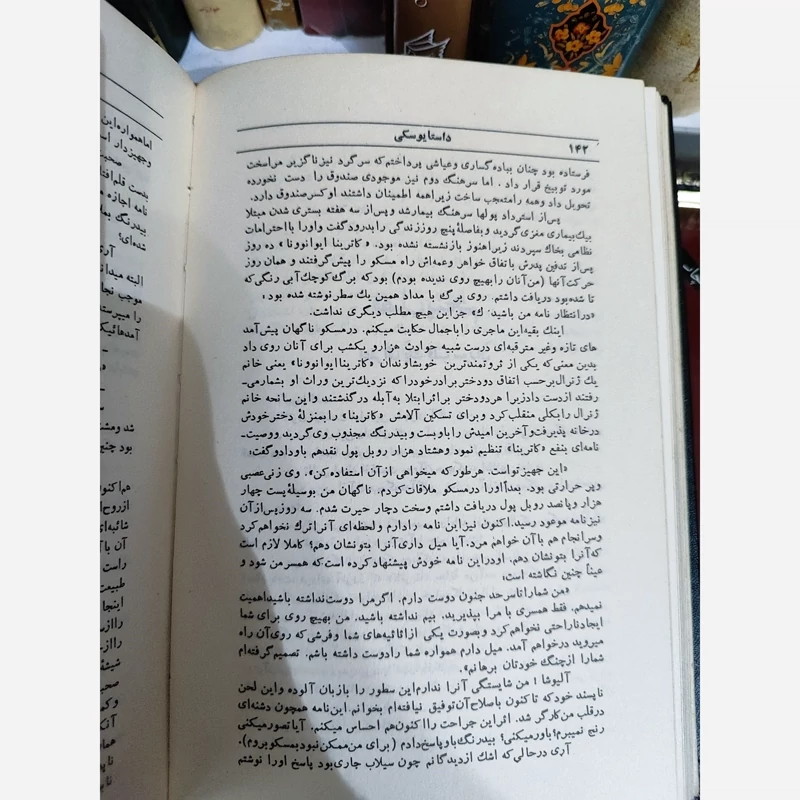 ۱۴۲
داستایوسکی
فرستاده بود چنان بباده گساری و عیاشی پرداختم که سرگرد نیز ناگزیر مراسخت
مورد توبیخ قرار داد . اما سرهنگ دوم نیز موجودی صندوق را دست نخورده
تحویل داد و همه را متعجب ساخت زیرا همه اطمینان داشتند او کسر صندوق دارد.
پس از استرداد پولها سرهنگ بیمار شد و پس از سه هفته بستری شدن مبتلا
بیك بیماری مغزی گردید و بفاصلهٔ پنج روز زندگی را بدرود گفت و او را با احترامات
نظامی بخاك سپردند زیرا هنوز بازنشسته نشده بود. «کاترینا ایوانوونا» ده روز
پس از تدفین پدرش باتفاق خواهر و عمه‌اش راه مسکو را پیش گرفتند و همان روز
حرکت آنها (من آنان را بهیچ روی ندیده بودم) بود که برگ کوچك آبی رنگی که
تا شده بود دریافت داشتم. روی برگ با مداد همین یك سطر نوشته شده بود :
«در انتظار نامه من باشید. ك» جز این هیچ مطلب دیگری نداشت.
اینك بقیه این ماجری را باجمال حکایت میکنم. در مسکو ناگهان پیش آمد
های تازه و غیر مترقبه‌ای درست شبیه حوادث هزار و یکشب برای آنان روی داد
بدین معنی که یکی از ثروتمندترین خویشاوندان «کاترینا ایوانوونا» یعنی خانم
یك ژنرال برحسب اتفاق دو دختر برادر خود را که نزدیك ترین وراث او بشمار می‌ـ
رفتند از دست داد زیرا هر دو دختر بر اثر ابتلا به آبله درگذشتند و این سانحه خانم
ژنرال را بکلی منقلب کرد و برای تسکین آلامش «کاترینا» را بمنزلهٔ دختر خودش
در خانه پذیرفت و آخرین امیدش را باو بست و بیدرنگ مجذوب وی گردید و وصیت‌ـ
نامه‌ای بنفع «کاترینا» تنظیم نمود و هشتاد هزار روبل پول نقد هم باو داد و گفت:
«این جهیز تو است. هر طور که میخواهی از آن استفاده کن». وی زنی عصبی
و پر حرارتی بود. بعداً او را در مسکو ملاقات کردم. ناگهان من بوسیلهٔ پست چهار
هزار و پانصد روبل پول دریافت داشتم و سخت دچار حیرت شدم. سه روز پس از آن
نیز نامه موعود رسید. اکنون نیز این نامه را دارم و لحظه‌ای آنرا ترك نخواهم کرد
و سرانجام هم با آن خواهم مرد. آیا میل داری آنرا بتو نشان دهم؟ کاملا لازم است
که آنرا بتو نشان دهم. او در این نامه خودش پیشنهاد کرده است که همسر من شود و
عیناً چنین نگاشته است:
«من شما را تا سر حد جنون دوست دارم. اگر مرا دوست نداشته باشید اهمیت
نمیدهم. فقط همسری با مرا بپذیرید. بیم نداشته باشید. من بهیچ روی برای شما
ایجاد ناراحتی نخواهم کرد و بصورت یکی از اثاثیه‌های شما و فرشی که روی آن راه
میروید درخواهم آمد. میل دارم همواره شما را دوست داشته باشم. تصمیم گرفته‌ام
شما را از چنگ خودتان برهانم».
آلیوشا ! من شایستگی آنرا ندارم این سطور را با زبان آلوده و این لحن
ناپسند خود که تا کنون باصلاح آن توفیق نیافته‌ام بخوانم. این نامه همچون دشنه‌ای
در قلب من کارگر شد. اثر این جراحت را اکنون هم احساس میکنم. آیا تصور میکنی
رنج نمیبرم؟ باور میکنی؟ بیدرنگ باو پاسخ دادم (برای من ممکن نبود بمسکو بروم).
آری در حالی که اشك از دیدگانم چون سیلاب جاری بود پاسخ او را نوشتم
اما همواره این
و جهیز دار
نامه اجازه
شده‌ای؟
آری
البته میدانی
موجب
را میپرست
بود چنین
هم اکنون
از روح
شائبه‌ای
راست
طبیعت
اینجا